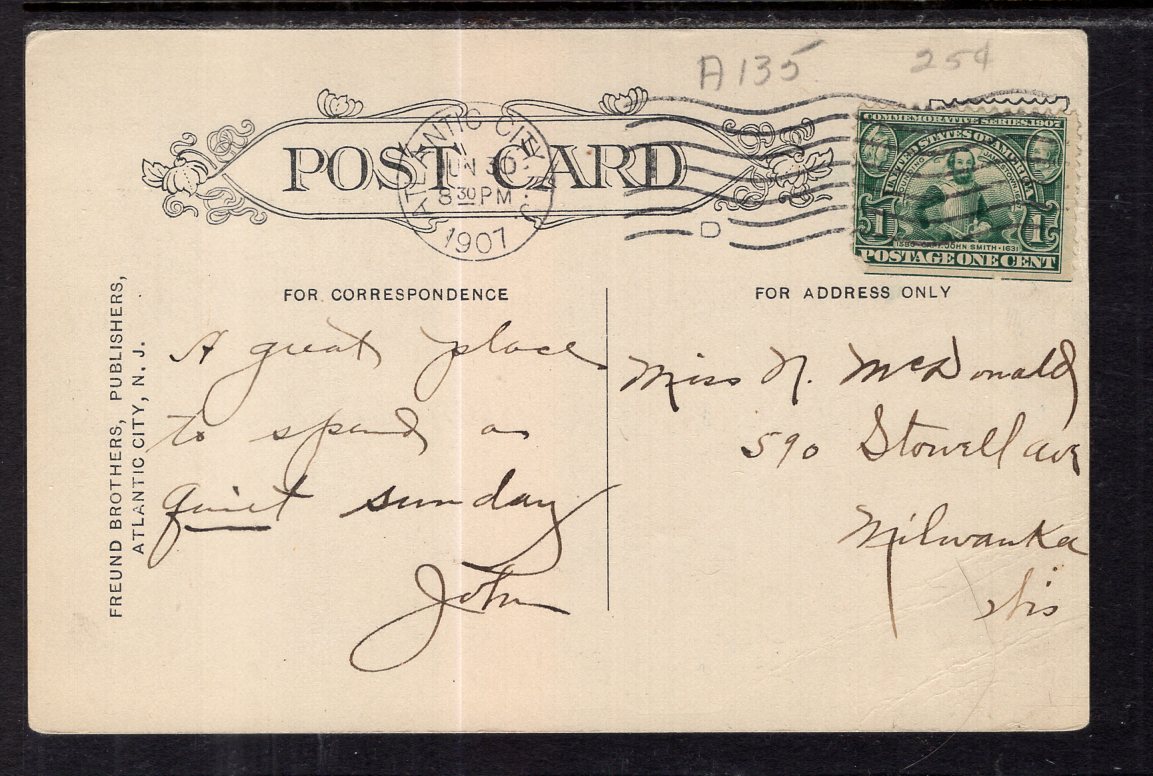 A135 25¢
POST CARD
ATLANTIC CITY
JUN 30
8 30 PM
1907
D
COMMEMORATIVE SERIES 1907
UNITED STATES OF AMERICA
1 1
1580 · CAPT. JOHN SMITH · 1631
POSTAGE ONE CENT
FOR CORRESPONDENCE
FOR ADDRESS ONLY
FREUND BROTHERS, PUBLISHERS,
ATLANTIC CITY, N. J.
A great place
to spend a
quiet sunday
John
Miss N. McDonald
590 Stowell ave
Milwauka
Wis